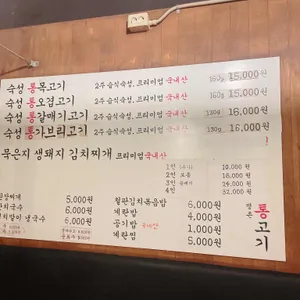 숙성 통목고기 2주 습식숙성, 프리미엄 국내산 160g 15,000원
숙성 통오겹고기 2주 습식숙성, 프리미엄 국내산 160g 15,000원
숙성 통갈매기고기 2주 습식숙성, 프리미엄 국내산 130g 16,000원
숙성 통가브리고기 2주 습식숙성, 프리미엄 국내산 130g 16,000원
묵은지 생돼지 김치찌개 프리미엄 국내산
1인 10,000원
2인 18,000원
3인 24,000원
4인 32,000원
5,000원
4,000원
6,000원
철판김치볶음밥 6,000원
계란밥 4,000원
공기밥 국내산 1,000원
계란찜 5,000원
맛은 통고기